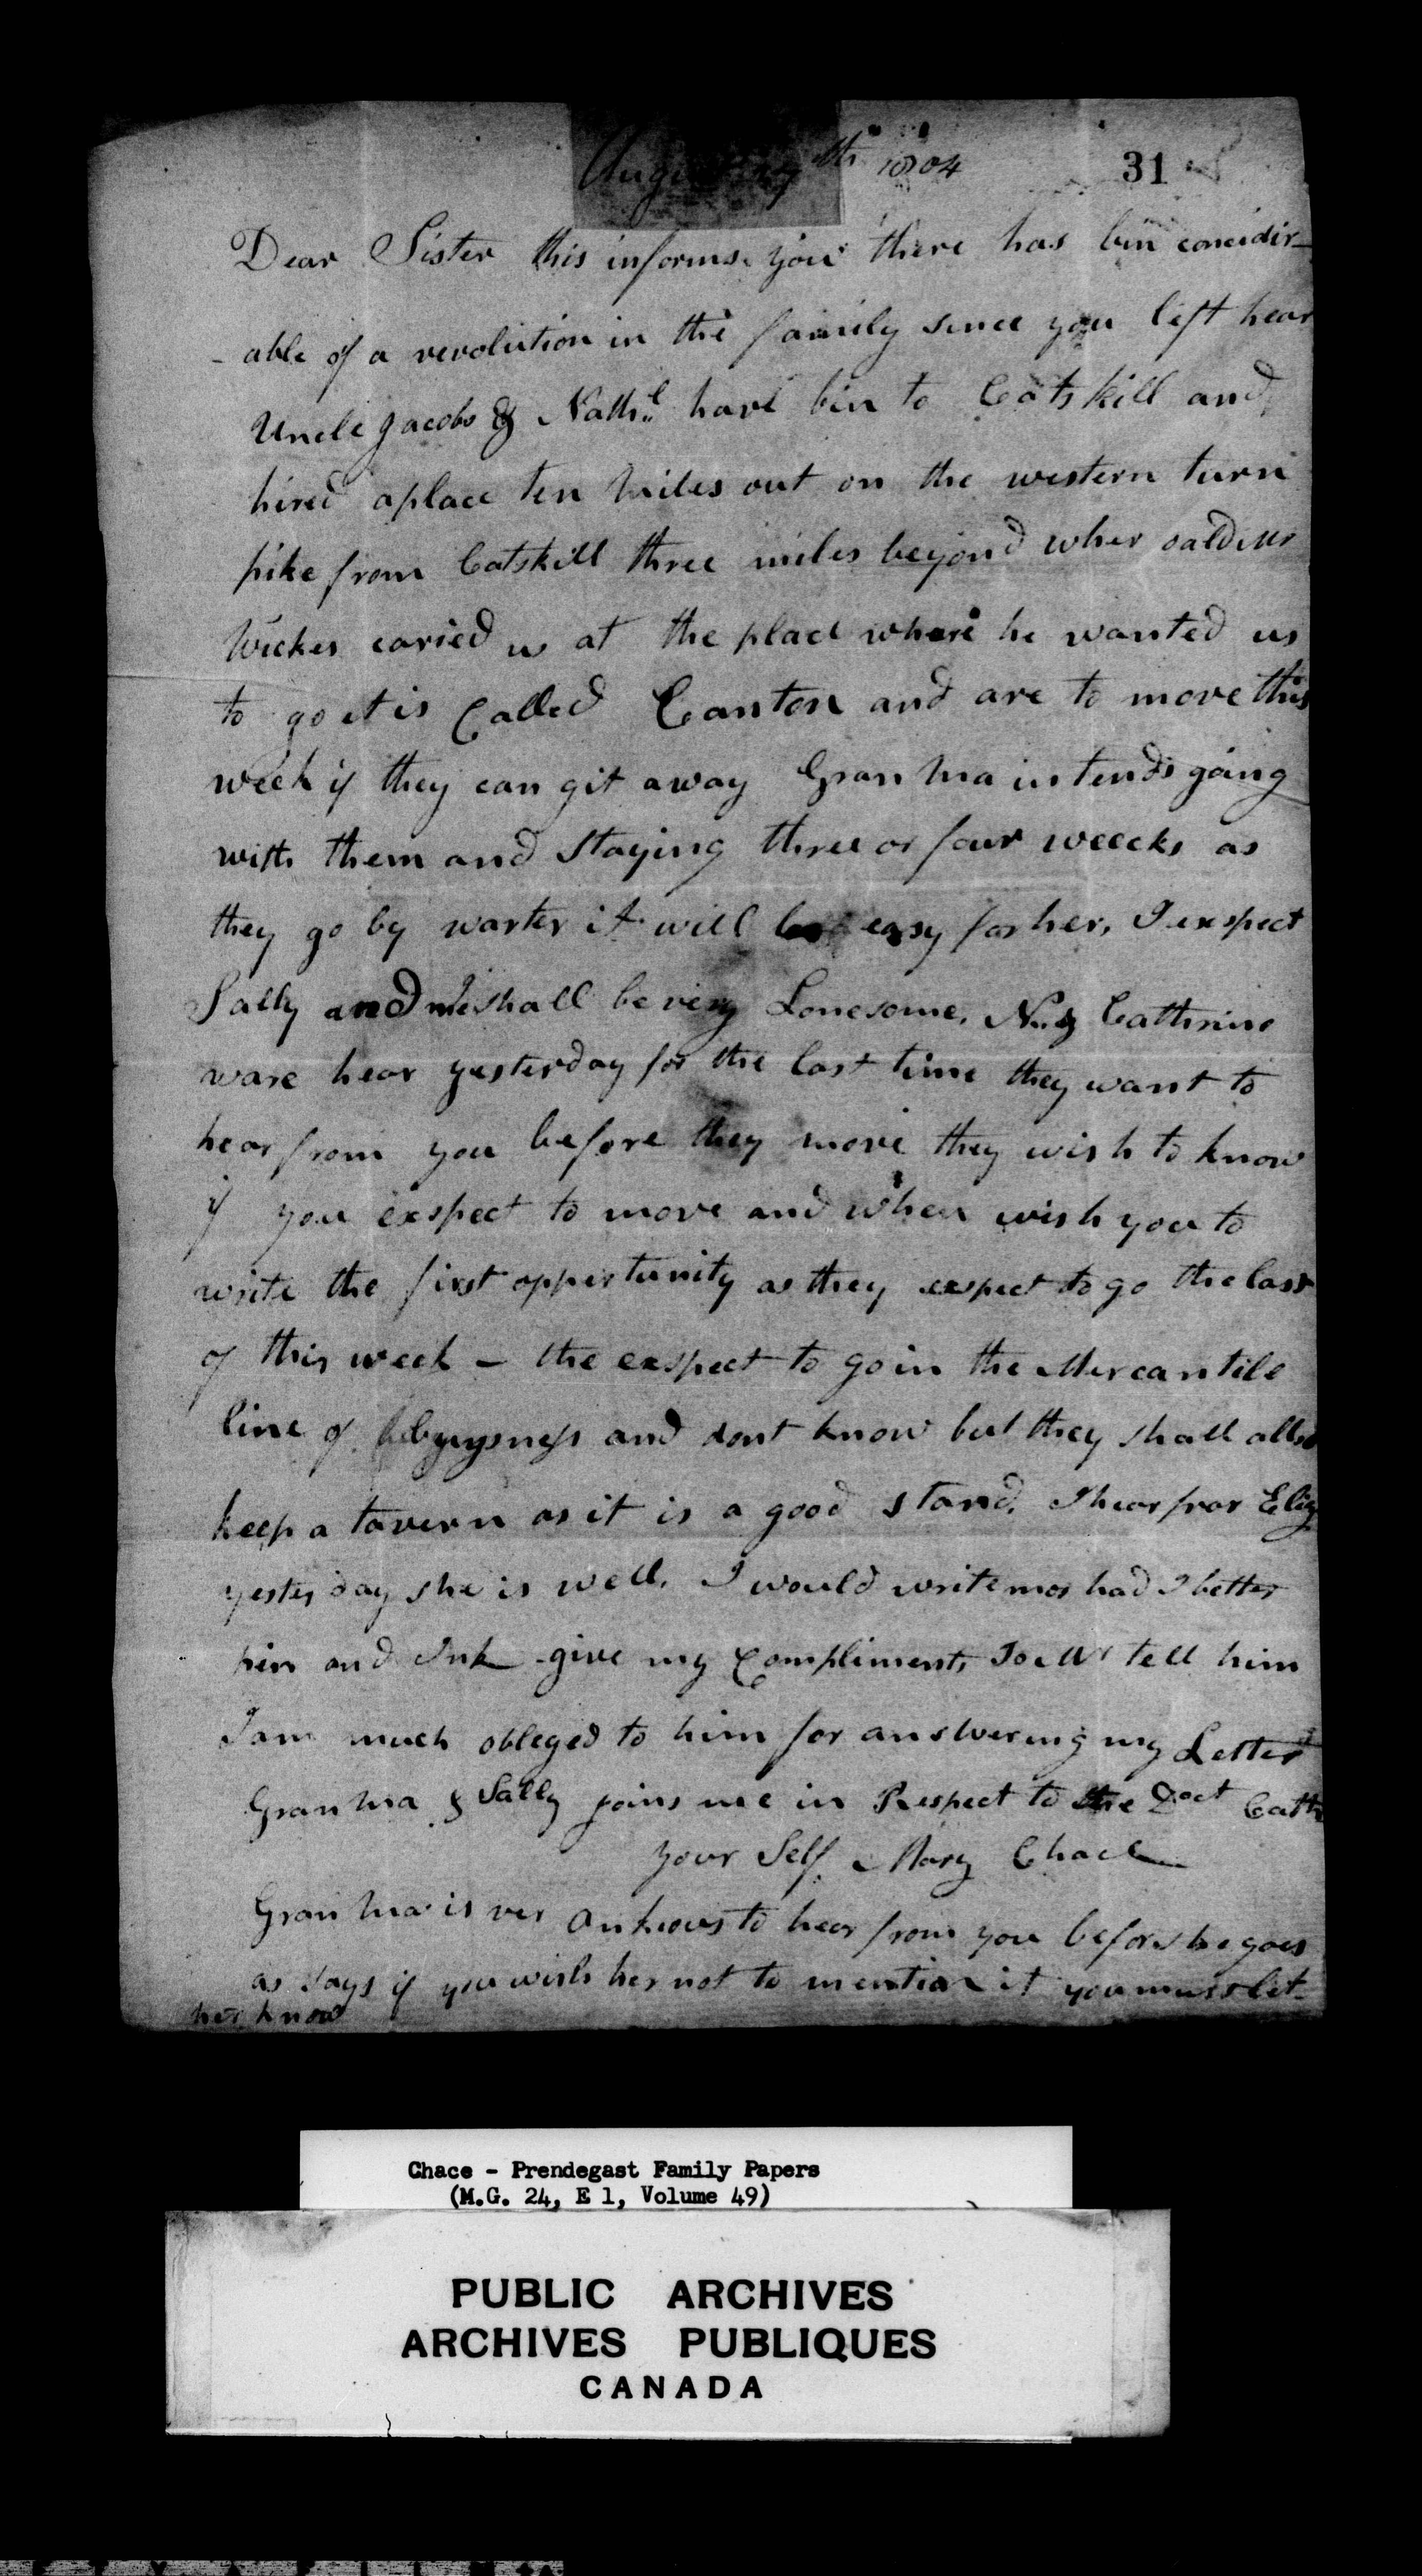 August th 1804
31
Dear Sister this informs you there has bin concidir-
- able of a revolution in the family since you left hear
Uncle Jacobs & Nathl have bin to Catskill and
hired aplace ten miles out on the western turn
pike from Catskill three miles beyond wher oald Mr
Wickes caried us at the place where he wanted us
to go it is Called Canton and are to move this
week if they can git away Gran Ma intends going
with them and staying three or four weecks as
they go by warter it will be easy for her, I exspect
Sally and me shall be very Lonesome, N. & Cathrine
ware hear yesterday for the last time they want to
hear from you before they move they wish to know
if you exspect to move and when wish you to
write the first oppertunity as they exspect to go the last
of this week - the exspect to go in the Mercantile
line of and dont know but they shall allso
keep a tavern as it is a good stand. I hear from Eliz
yesterday she is well. I would write mor had I better
pen and Ink - give my Compliments To Mr tell him
I am much obleged to him for answering my Letter
Gran Ma & Sally joins me in Respect to the Doct Cath
your Self Mary Chace
Gran Ma is ver Ankious to hear from you befor she goes
as says if you wish her not to mention it you must let
her know
Chace - Prendegast Family Papers
(M.G. 24, E 1, Volume 49)
PUBLIC ARCHIVES
ARCHIVES PUBLIQUES
CANADA